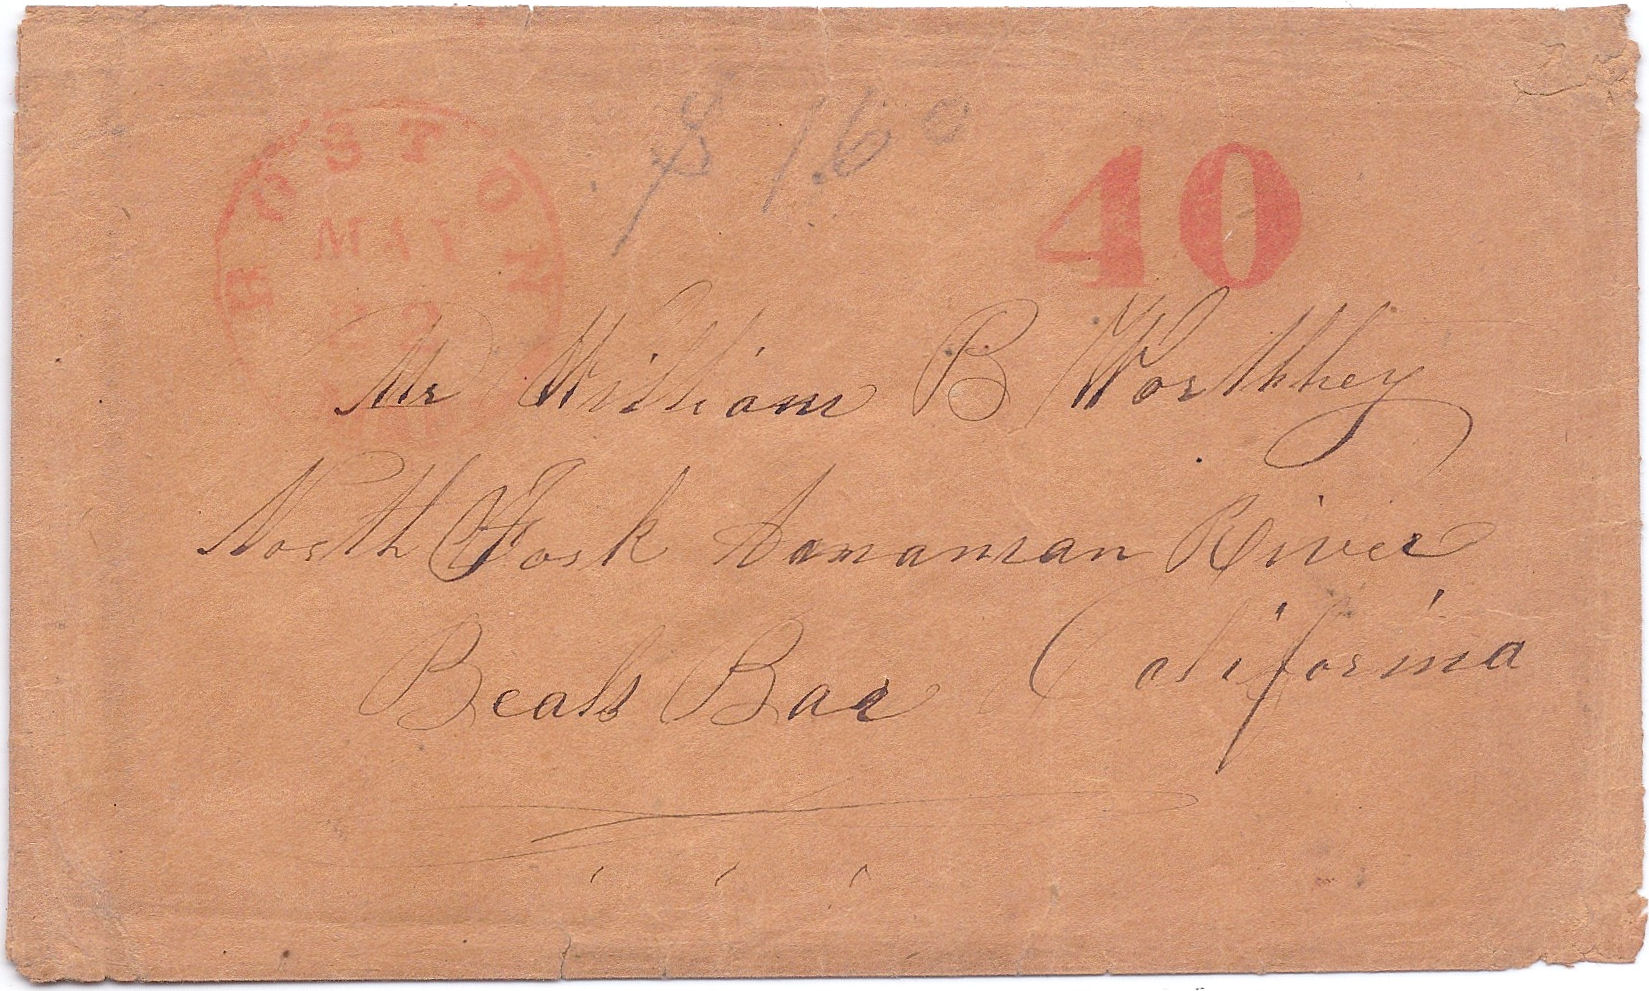 BOSTON
MAY
22
$ 1.60
40
Mr William B Worthhey
North Fork River
Beals Bar California